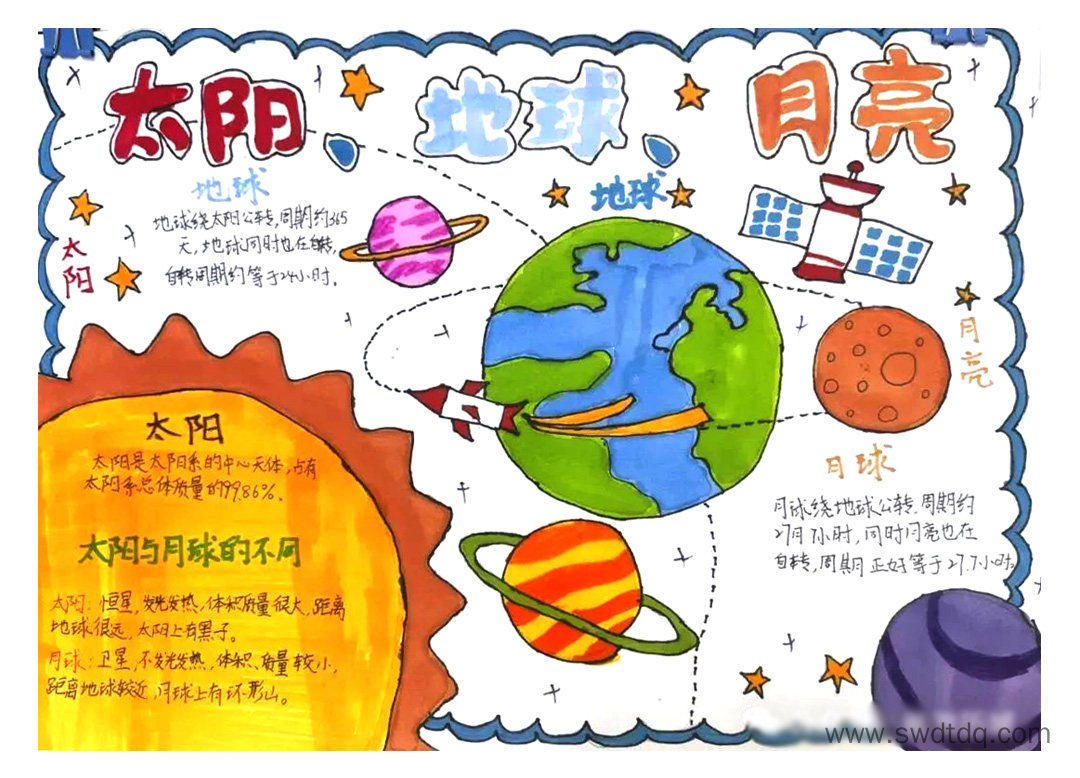 太阳、地球、月亮
地球
地球绕太阳公转,周期约365
天,地球同时也在自转,
自转周期约等于24小时。
太阳
地球
月亮
太阳
太阳是太阳系的中心天体,占有
太阳系总体质量的99.86%。
太阳与月球的不同
太阳:恒星,发光发热,体积质量很大,距离
地球很远,太阳上有黑子。
月球:卫星,不发光发热,体积、质量较小,
距离地球较近,月球上有环形山。
月球
月球绕地球公转,周期约
27月7小时,同时月亮也在
自转,周期正好等于27.7小时。
www.swdtdq.com